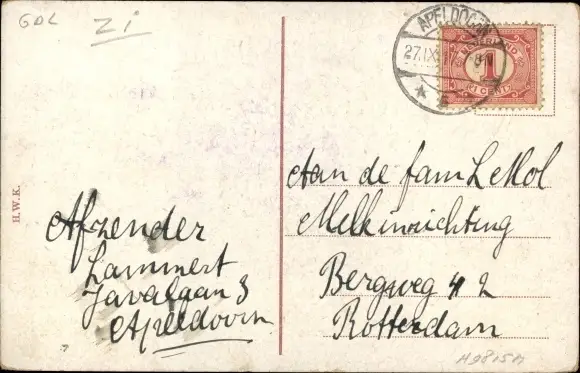 GDL
Zi
APELDOORN
27.IX
NEDERLAND
1
CENT
H.W.K.
Aan de fam L Mol
Melkinrichting
Bergweg 42
Rotterdam
Afzender
Lammert
Javalaan 3
Apeldoorn